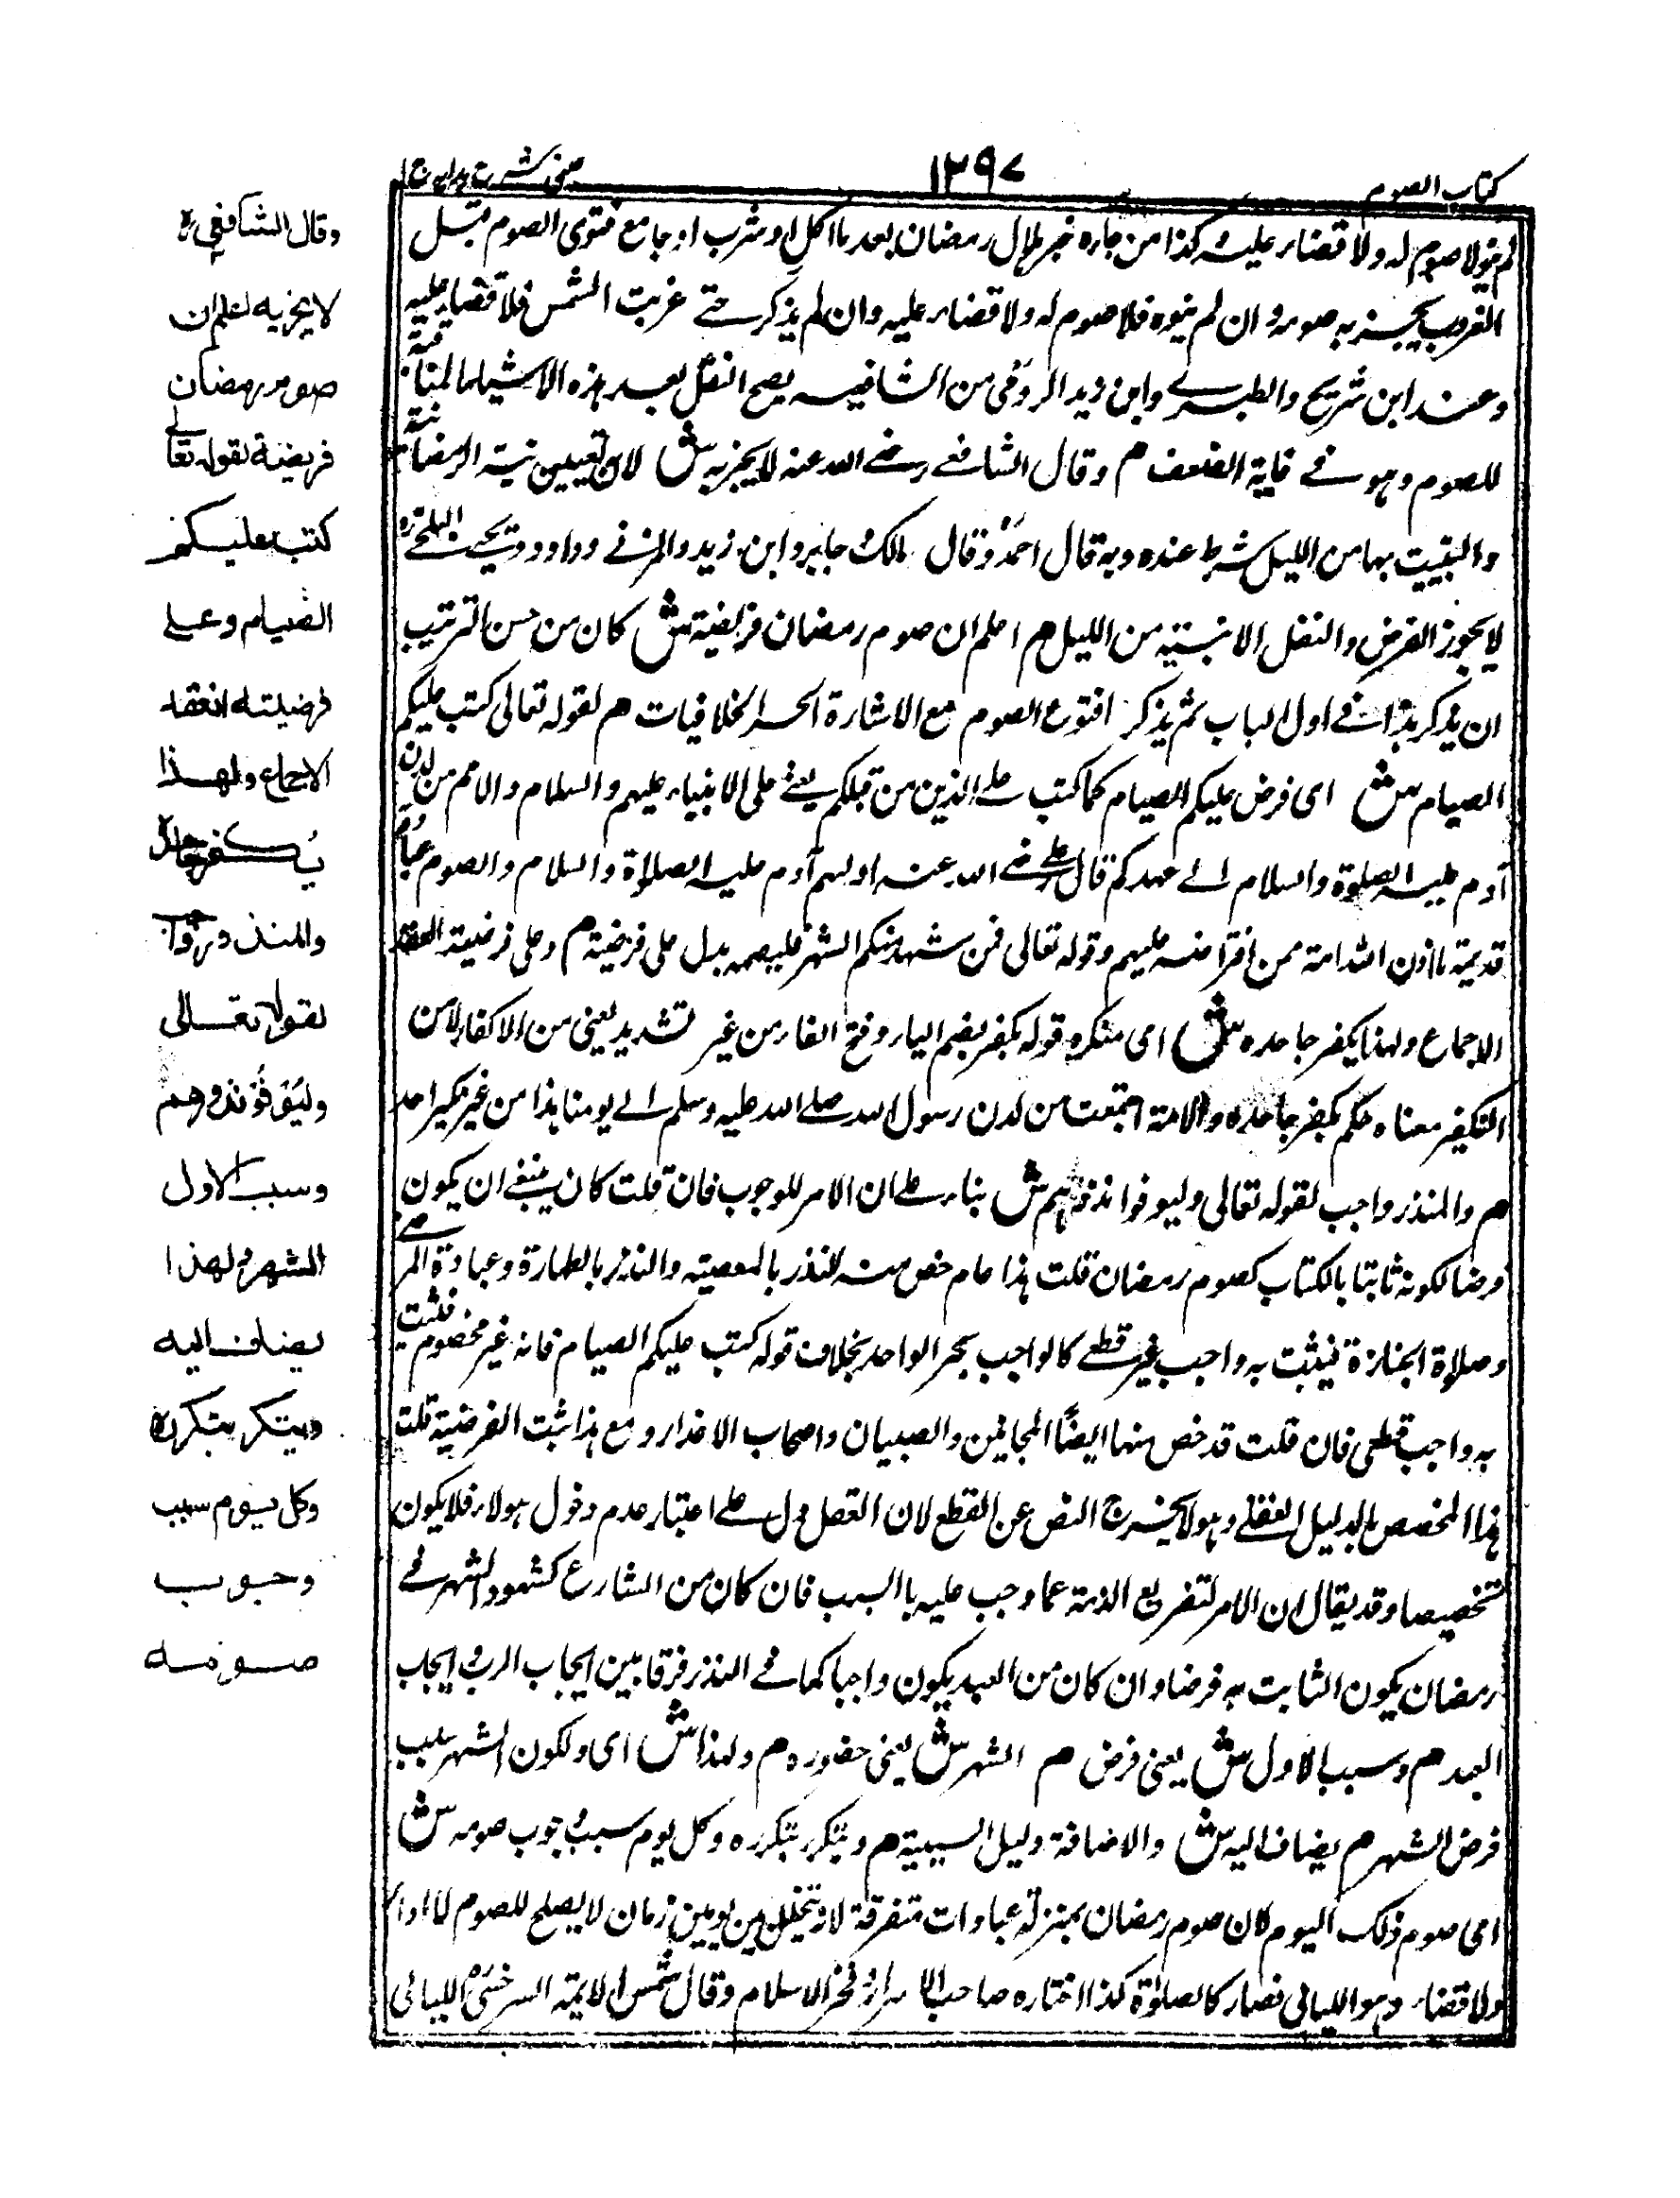 كتاب الصوم
١٣٩٧
عينى شرح هداية ج ١
لم ينو لا صوم له ولا قضاء عليه كذا من جاءه خبر هلال رمضان بعد ما اكل او شرب او جامع فنوى الصوم قبل
الغروب يجزيه صومه و ان لم ينوه فلا صوم له ولا قضاء عليه وان لم يذكر حتى غربت الشمس فلا قضاء عليه
وعند ابن شريح والطبرى وابن زيد المروزى من الشافعيه يصح النفل بعد هذه الاشياء المنافية
للصوم وهو فى غاية الضعف م وقال الشافعى رضى الله عنه لا يجزيه ش لان تعيين نية الرمضانية
والتبييت بها من الليل شرط عنده وبه قال احمد وقال مالك وجابر وابن زيد والمزنى وداود ويحيى البلخى
لا يجوز الفرض والنفل الا بنيته من الليل م اعلم ان صوم رمضان فريضة ش كان من حسن الترتيب
ان يذكر هذا فى اول الباب ثم يذكر انواع الصوم مع الاشارة الى الخلافيات م لقوله تعالى كتب عليكم
الصيام ش اى فرض عليكم الصيام كما كتب على الذين من قبلكم يعنى على الانبياء عليهم والسلام والامم من لدن
آدم عليه الصلوة والسلام الى عهدكم قال على رضى الله عنه اولهم آدم عليه الصلاة والسلام والصوم عبادة
قديمة ما اذن الله امة من افتراضه عليهم وقوله تعالى فمن شهد منكم الشهر فليصمه يدل على فرضيته م وعلى فرضيته انعقد
الاجماع ولهذا يكفر جاحده ش اى منكره قوله يكفر بضم الياء وفتح الفاء من غير تشديد يعنى من الاكفار لا من
التكفير معناه حكم بكفر جاحده والامة اجتمعت من لدن رسول الله صلى الله عليه وسلم الى يومنا هذا من غير نكير احد
م والمنذر واجب لقوله تعالى وليوفوا نذورهم ش بناء على ان الامر للوجوب فان قلت كان ينبغى ان يكون
فرضا لكونه ثابتا بالكتاب كصوم رمضان قلت هذا عام خص منه النذر بالمعصية والنذر بالطهارة وعيادة المرضى
وصلاة الجنازة فيثبت به واجب غير قطعى كالواجب بخبر الواحد بخلاف قوله كتب عليكم الصيام فانه غير مخصوص فثبت
به واجب قطعى فان قلت قد خص منها ايضًا المجانين والصبيان واصحاب الاعذار و مع هذا ثبت الفرضية قلت
هذا المخصص بالدليل العقلى وهو لا يخرج النص عن القطع لان العقل دل على اعتبار عدم دخول هولاء فلا يكون
تخصيصا وقد يقال ان الامر لتفريغ الذمة عما وجب عليه بالسبب فان كان من الشارع كشهود الشهر فى
رمضان يكون الثابت به فرضا وان كان من العبد يكون واجبا كما فى النذر فرقا بين ايجاب الرب و ايجاب
العبد م وسبب الاول ش يعنى فرض م الشهر ش يعنى حضوره م ولهذا ش اى ولكون الشهر سبب
فرض الشهر م يضاف اليه ش والاضافة دليل السببية م ويتكرر بتكرره وكل يوم سبب وجوب صومه ش
اى صوم ذلك اليوم لان صوم رمضان بمنزلة عبادات متفرقة لانه يتخلل بين يومين زمان لا يصلح للصوم لا اداء
ولا قضاء وهو الليالى فصار كالصلوة كذا اختاره صاحب الاسرار وفخر الاسلام وقال شمس الايمة السرخسى الليالى
وقال الشافعى رح
لا يجزيه اعلم ان
صوم رمضان
فريضة لقوله تعالى
كتب عليكم
الصيام وعلى
فرضيته انعقد
الاجماع ولهذا
يُكفر جاحده
والمنذور واجب
لقوله تعالى
وليُوفُوا نذورهم
وسبب الاول
الشهر ولهذا
يضاف اليه
ويتكرر بتكرره
وكل يوم سبب
وجوب
صومه